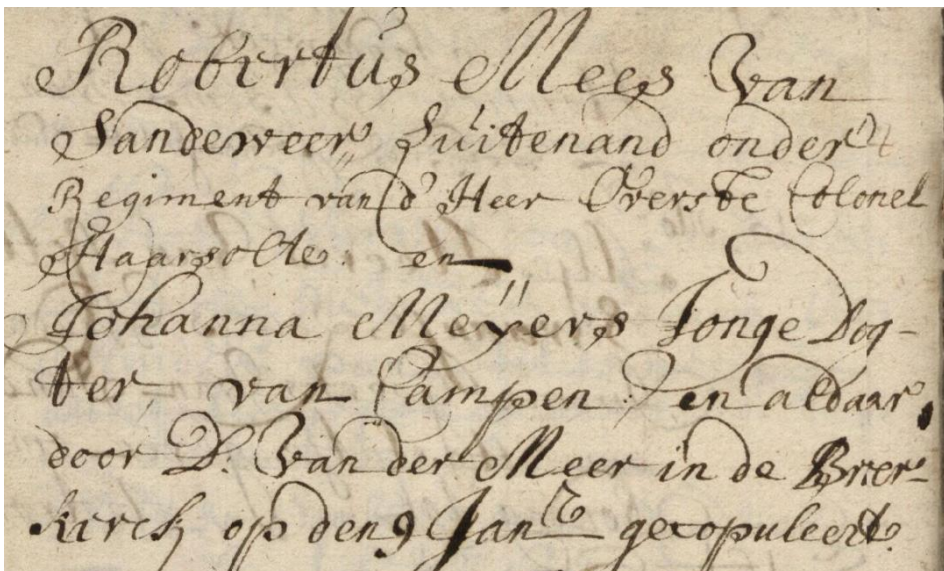 Robertus Mees van
Sandeweer, Luitenand onder 't
Regiment van d' Heer Overste Colonel
Haarsolte en
Johanna Meÿers Jonge Dog-
ter, van Campen en aldaar
door D. Van der Meer in de Broer-
kerck op den 9 Jan. gecopuleert.